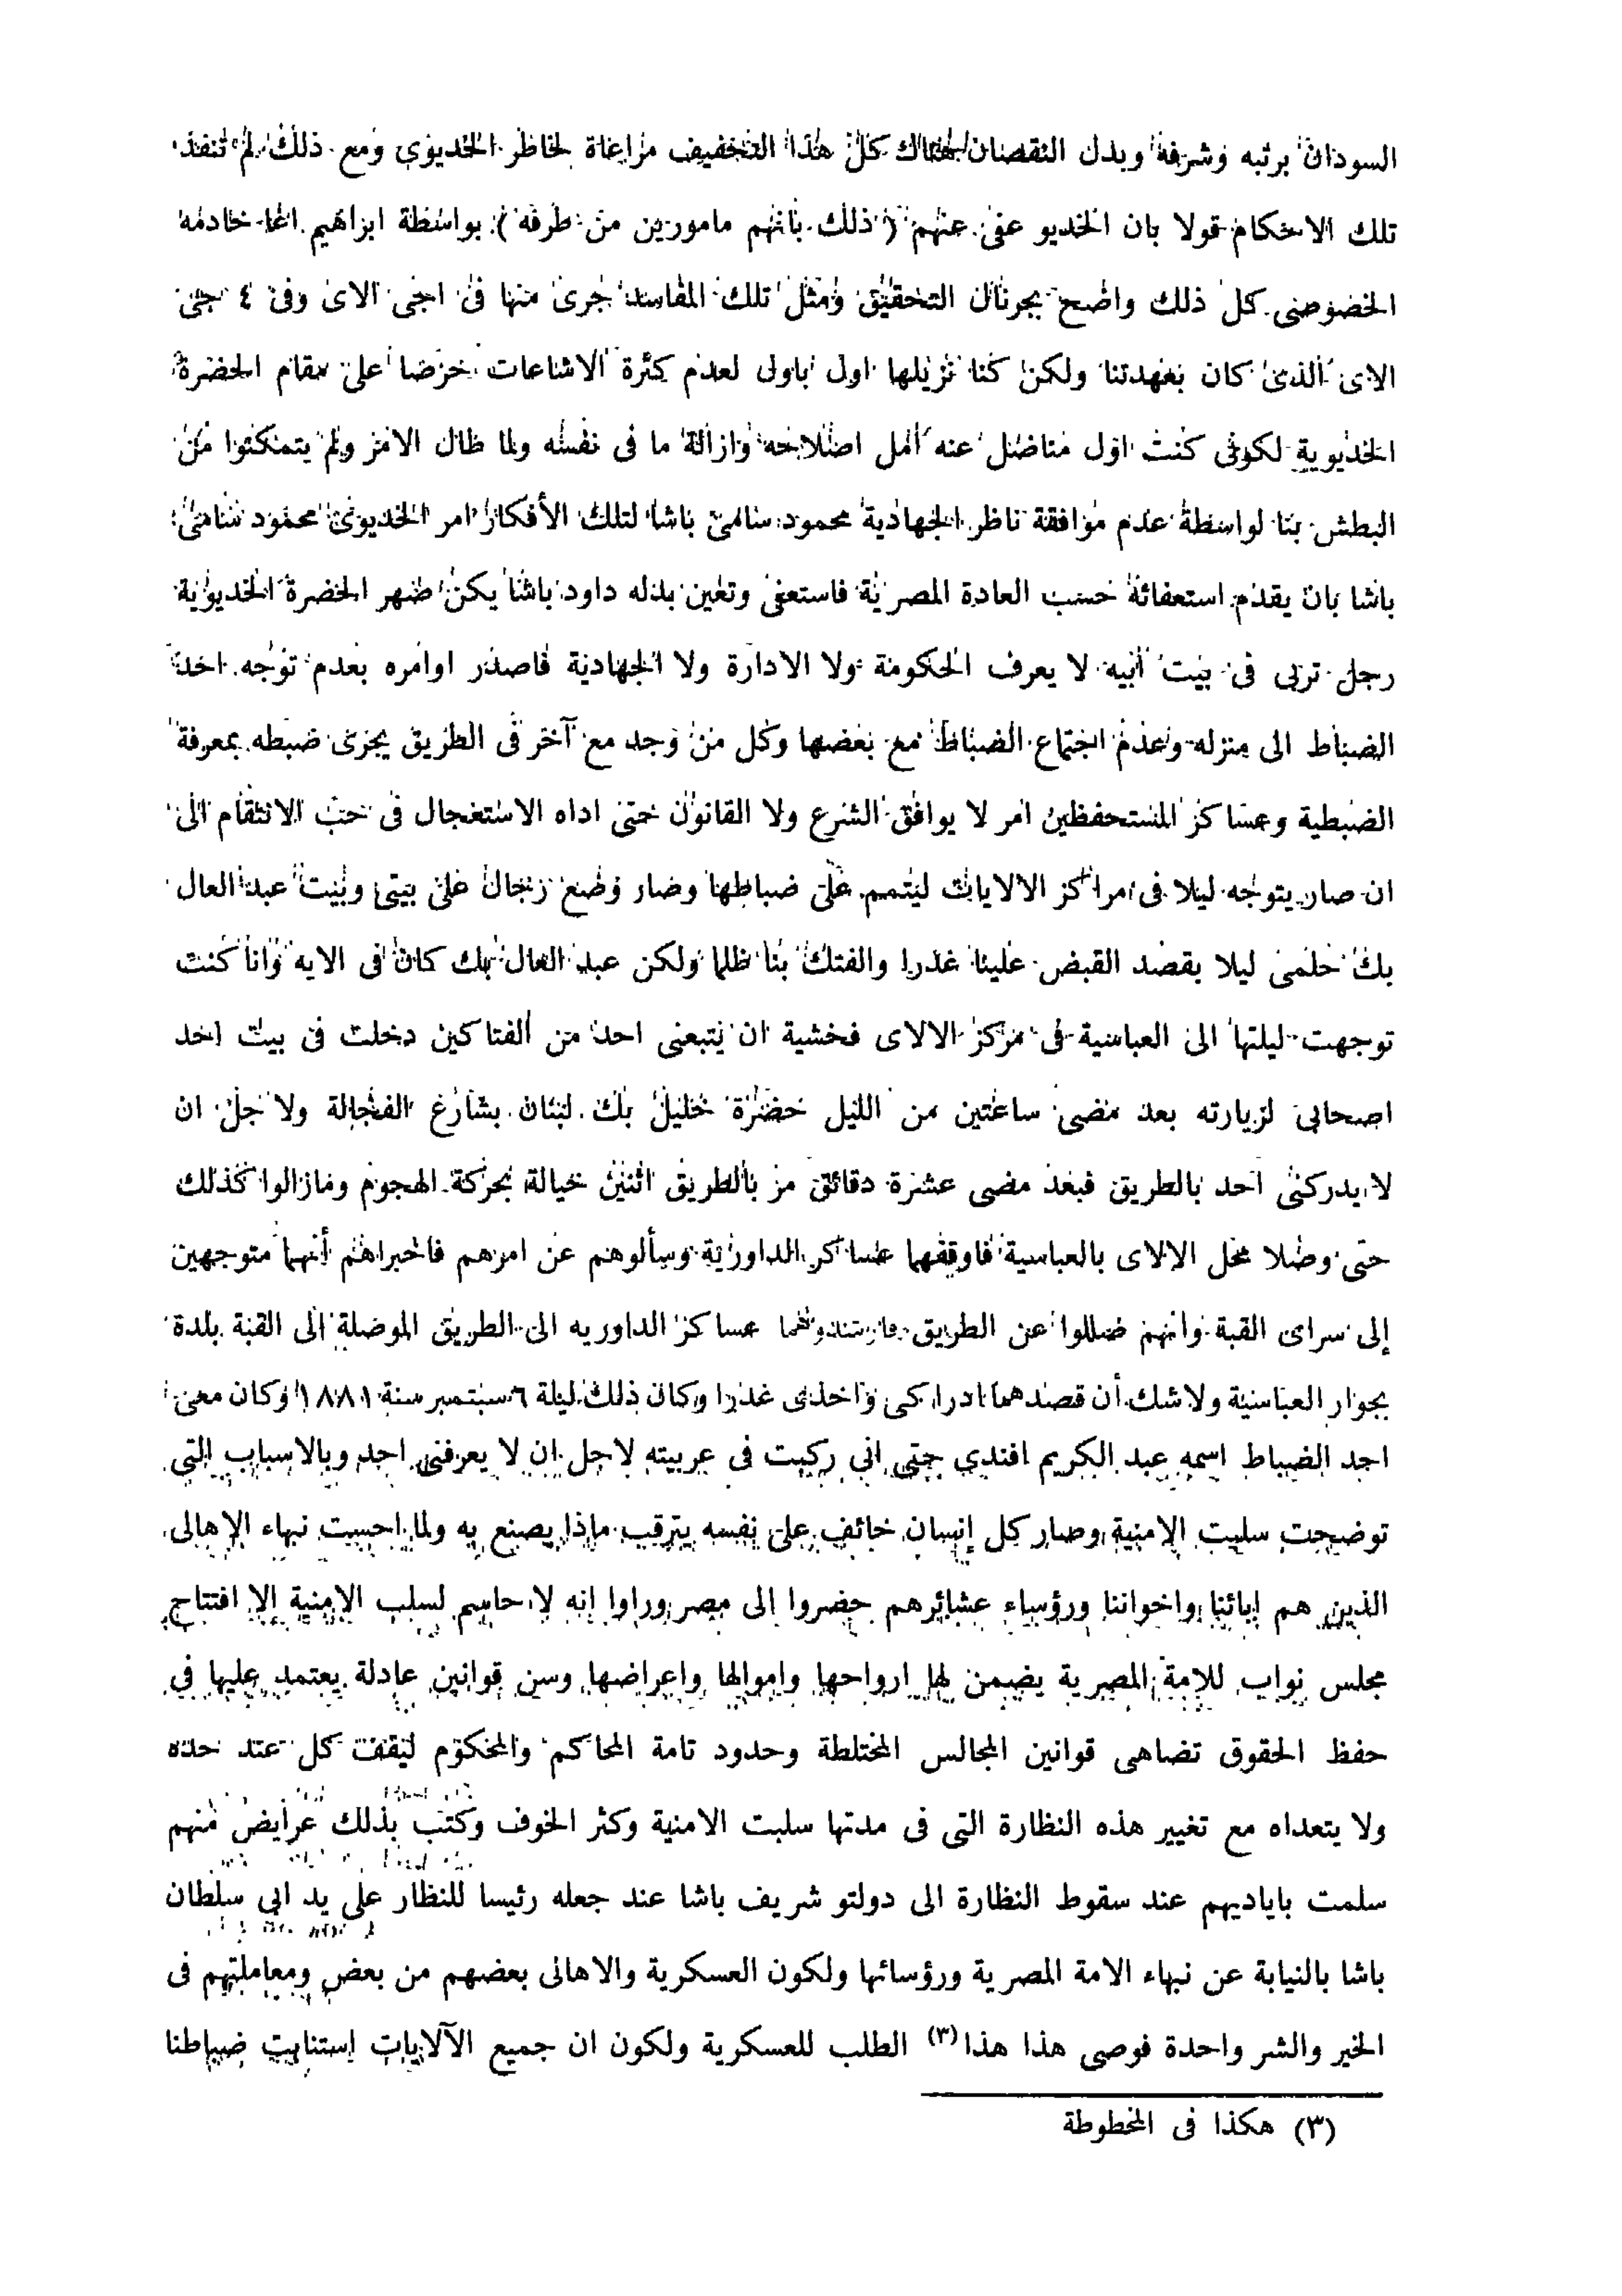 السودان برتبه وشرفه وبدل النقصان لهناك كل هذا التخفيف مراعاة لخاطر الخديوى ومع ذلك لم تنفذ
تلك الاحكام قولا بان الخديو عفى عنهم (ذلك بانهم مامورين من طرفه) بواسطة ابراهيم اغا خادمه
الخصوصى كل ذلك واضح بجرنال التحقيق ومثل تلك المفاسد جرى منها فى اجى الاى وفى ٤ جى
الاى الذى كان بعهدتنا ولكن كنا نزيلها اول باول لعدم كثرة الاشاعات حرصا على مقام الحضرة
الخديوية لكونى كنت اول مناضل عنه أمل اصلاحه وازالة ما فى نفسه ولما طال الامر ولم يتمكنوا من
البطش بنا لواسطة عدم موافقة ناظر الجهادية محمود سامى باشا لتلك الأفكار امر الخديوى محمود سامى
باشا بان يقدم استعفائة حسب العادة المصرية فاستعفى وتعين بدله داود باشا يكن صهر الحضرة الخديوية
رجل تربى فى بيت أبيه لا يعرف الحكومة ولا الادارة ولا الجهادية فاصدر اوامره بعدم توجه احد
الضباط الى منزله وعدم اجتماع الضباط مع بعضها وكل من وجد مع آخر فى الطريق يجرى ضبطه بمعرفة
الضبطية وعساكر المستحفظين امر لا يوافق الشرع ولا القانون حتى اداه الاستعجال فى حب الانتقام الى
ان صار يتوجه ليلا فى مراكز الالايات ليتمم على ضباطها وصار وضع رجال على بيتى وبيت عبد العال
بك حلمى ليلا بقصد القبض علينا غدرا والفتك بنا ظلما ولكن عبد العال بك كان فى الايه وانا كنت
توجهت ليلتها الى العباسية فى مركز الالاى فخشية ان يتبعنى احد من الفتاكين دخلت فى بيت احد
اصحابى لزيارته بعد مضى ساعتين من الليل حضرة خليل بك لبنان بشارع الفجالة ولا جل ان
لا يدركنى أحد بالطريق فبعد مضى عشرة دقائق مر بالطريق اثنين خيالة بحركة الهجوم ومازالوا كذلك
حتى وصلا محل الالاى بالعباسية فاوقفهما عساكر الداورية وسألوهم عن امرهم فاخبراهم أنهما متوجهين
إلى سراى القبة وانهم ضللوا عن الطريق عساكر الداوريه الى الطريق الموصلة إلى القبة بلدة
بجوار العباسية ولاشك أن قصدهما ادراكى واخذى غدرا وكان ذلك ليلة ٦ سبتمبر سنة ١٨٨١ وكان معى
احد الضباط اسمه عبد الكريم افندي حتى انى ركبت فى عربيته لاجل ان لا يعرفنى احد وبالاسباب التى
توضحت سلبت الامنية وصار كل إنسان خائف على نفسه يترقب ماذا يصنع به ولما احست نبهاء الاهالى
الذين هم ابائنا واخواننا ورؤساء عشائرهم حضروا إلى مصر وراوا إنه لا حاسم لسلب الامنية إلا افتتاح
مجلس نواب للامة المصرية يضمن لها ارواحها واموالها واعراضها وسن قوانين عادلة يعتمد عليها فى
حفظ الحقوق تضاهى قوانين المجالس المختلطة وحدود تامة المحاكم والمحكوم ليقف كل عند حده
ولا يتعداه مع تغيير هذه النظارة التى فى مدتها سلبت الامنية وكثر الخوف وكتب بذلك عرايض منهم
سلمت باياديهم عند سقوط النظارة الى دولتو شريف باشا عند جعله رئيسا للنظار على يد ابى سلطان
باشا بالنيابة عن نبهاء الامة المصرية ورؤسائها ولكون العسكرية والاهالى بعضهم من بعض ومعاملتهم فى
الخير والشر واحدة فوصى هذا هذا (٣) الطلب للعسكرية ولكون ان جميع الآلايات استنابت ضباطنا
(٣) هكذا فى المخطوطة